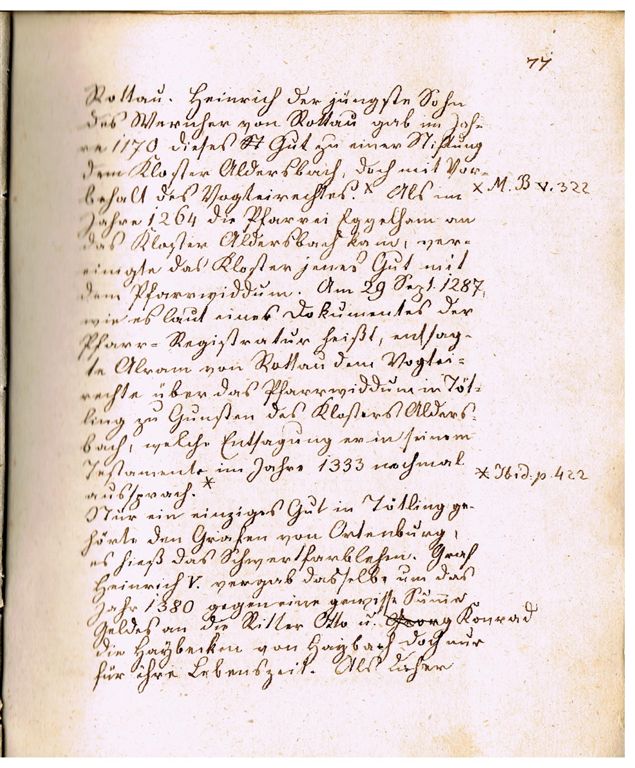 77
Rottau. Heinrich der jüngste Sohn
des Wernher von Rottau gab im Jah-
re 1170 dieses Gut zu einer Stiftung
dem Kloster Aldersbach, doch mit Vor-
behalt des Vogteirechtes. x Als im
x M. B V. 322
Jahre 1264 die Pfarrei Eggelham an
das Kloster Aldersbach kam, ver-
einigte das Kloster jenes Gut mit
dem Pfarrwiddum. Am 29 Sept. 1287,
wie es laut eines Dokumentes der
Pfarr-Registratur heißt, entsag-
te Alram von Rottau dem Vogtei-
rechte über das Pfarrwiddum in Töt-
ling zu Gunsten des Klosters Alders-
bach, welche Entsagung er in seinem
Testamente im Jahre 1333 nochmal
x Ibid. p. 422
aussprach. x
Nur ein einziges Gut in Tötling ge-
hörte den Grafen von Ortenburg,
es hieß das Schwertfarblehen. Graf
Heinrich V. vergab dasselbe um das
Jahr 1380 gegen eine gewisse Summe
Geldes an die Ritter Otto u. Georg Konrad
die Haybecken von Haybach doch nur
für ihre Lebenszeit. Als daher